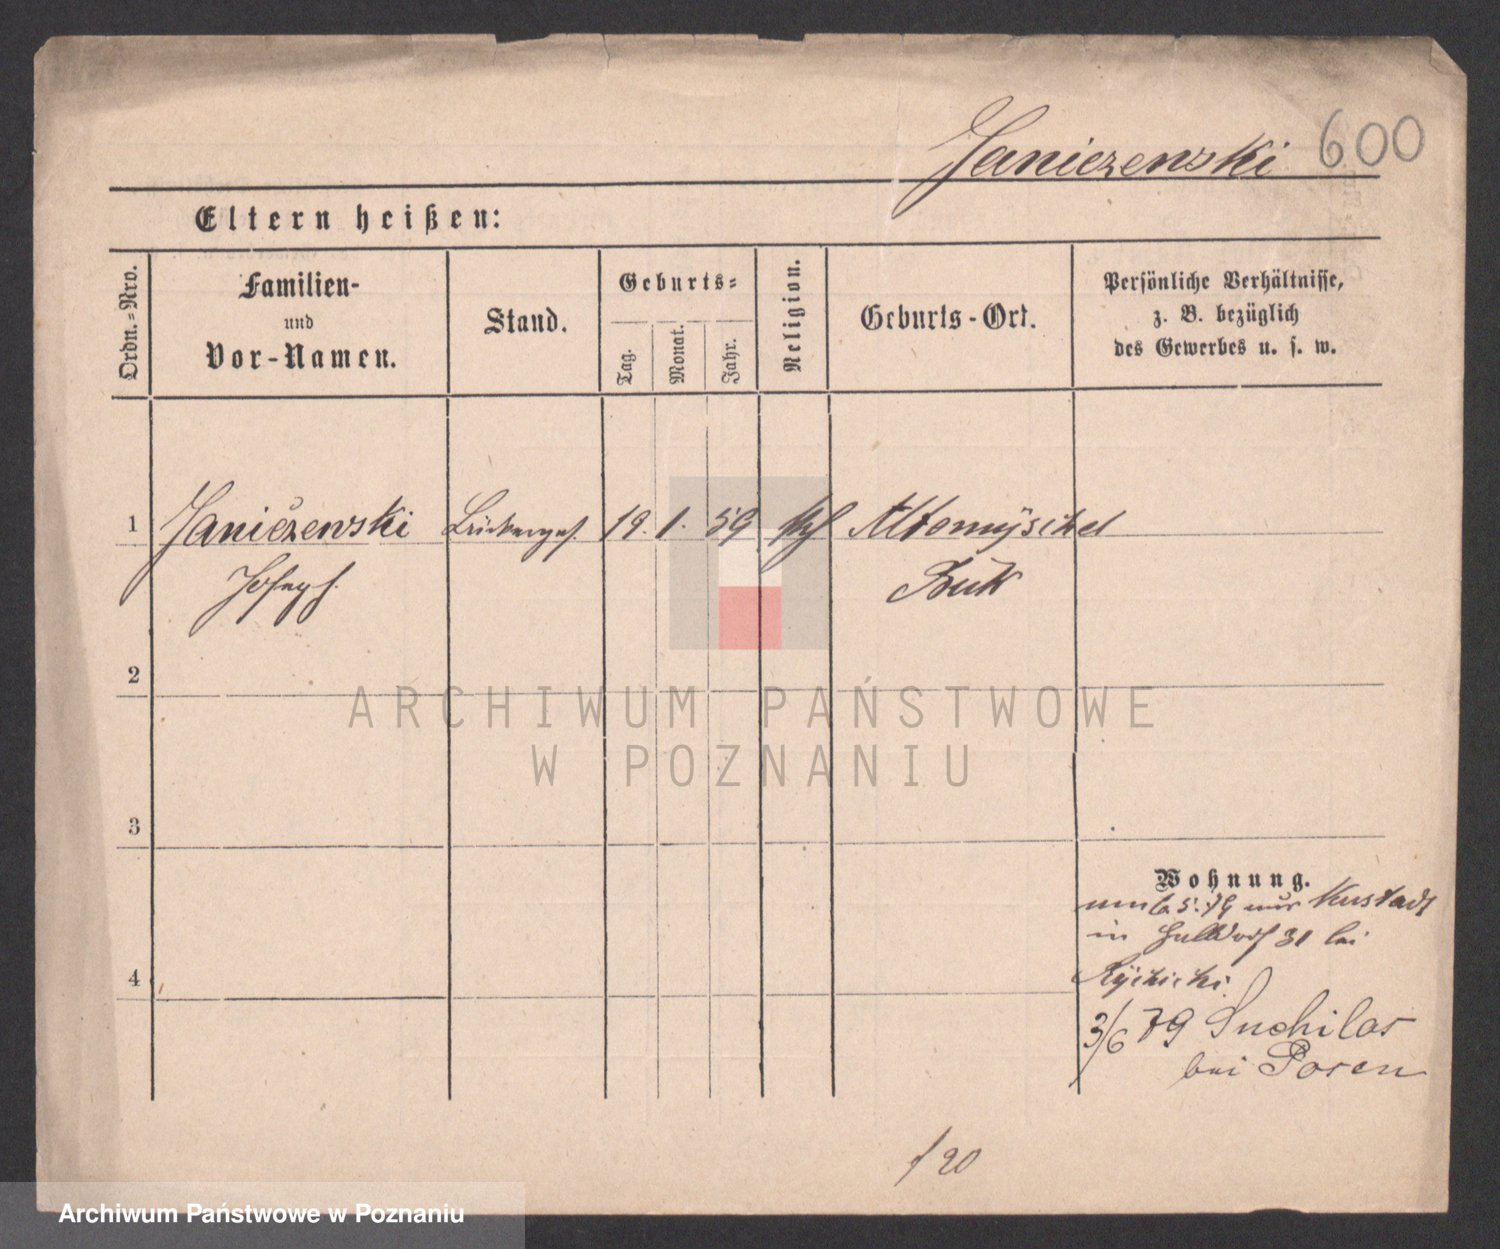 Janiczenski 600
Eltern heißen:
Ordn.=Nro.
Familien-
und
Vor-Namen.
Stand.
Geburts=
Tag.
Monat.
Jahr.
Religion.
Geburts-Ort.
Persönliche Verhältnisse,
z. B. bezüglich
des Gewerbes u. s. w.
1 Janiczenski 19. 1. 59 Altomysikel
Joseph. Buk
2
ARCHIWUM PAŃSTWOWE
W POZNANIU
3
Wohnung.
5. 79
in 31 bei
4
3/6 79 Suchilas
bei Posen
/20
Archiwum Państwowe w Poznaniu